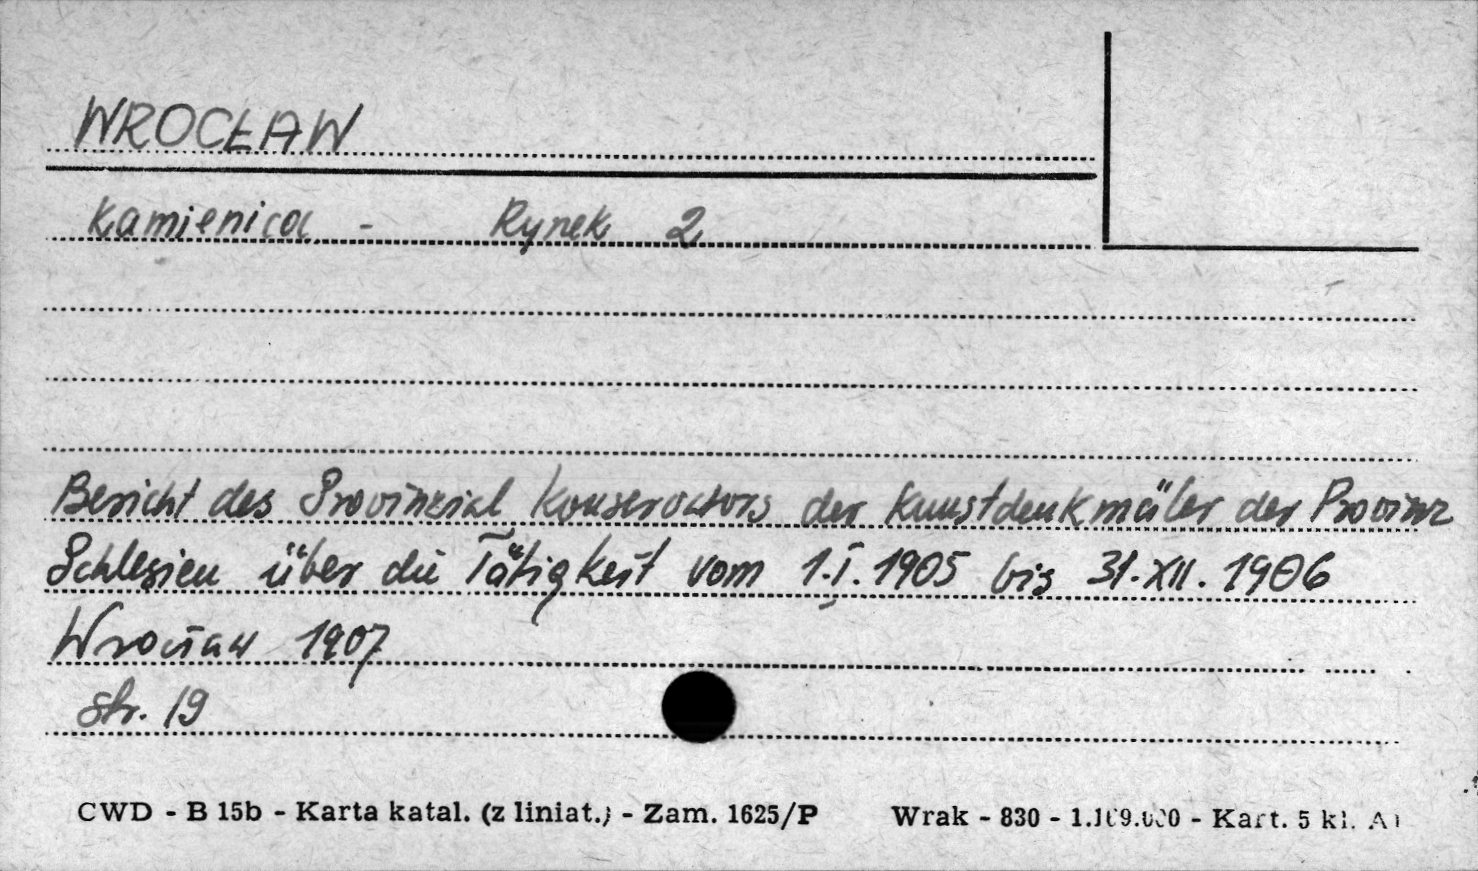 WROCŁAW
Kamienica - Rynek 2
Bericht des Provinzial Konservators der Kunstdenkmäler der Provinz
Schlesien über die Tätigkeit vom 1.I.1905 bis 31.XII.1906
Wrocław 1907
str. 19
CWD - B 15b - Karta katal. (z liniat.) - Zam. 1625/P Wrak - 830 - 1.109.000 - Kart. 5 kl.